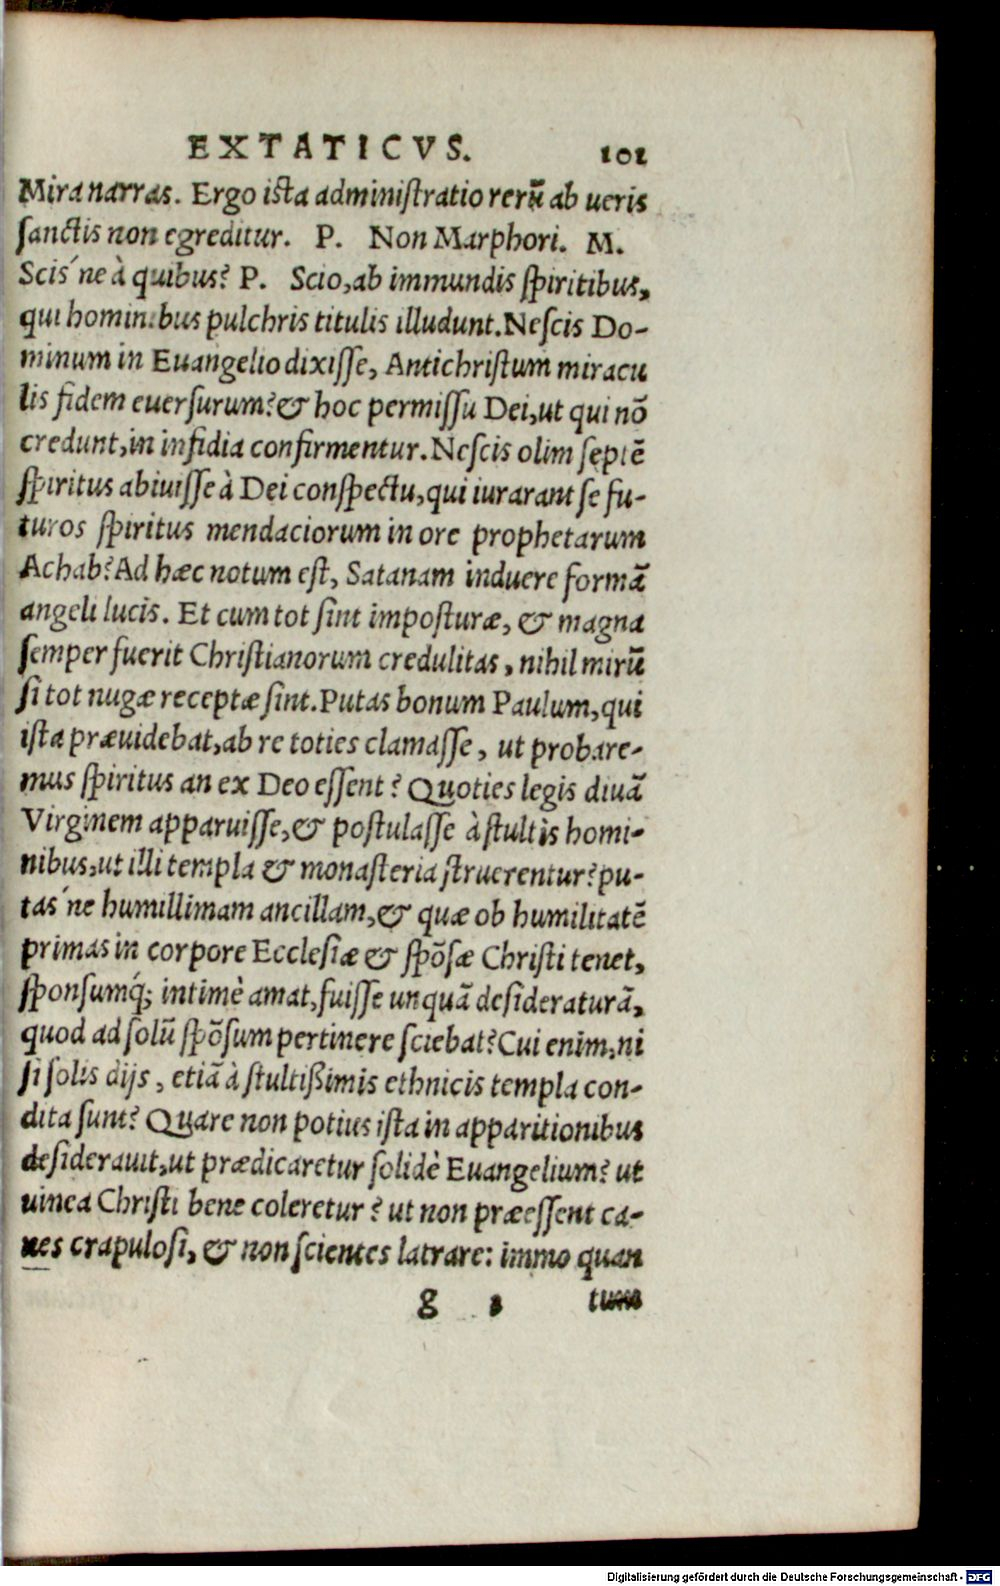 EXTATICVS. 101
Mira narras. Ergo ista administratio rerū ab ueris
sanctis non egreditur. P. Non Marphori. M.
Scis´ne à quibus? P. Scio, ab immundis spiritibus,
qui hominibus pulchris titulis illudunt. Nescis Do-
minum in Euangelio dixisse, Antichristum miracu
lis fidem euersurum? & hoc permissu Dei, ut qui nō
credunt, in infidia confirmentur. Nescis olim septē
spiritus abiuisse à Dei conspectu, qui iurarant se fu-
turos spiritus mendaciorum in ore prophetarum
Achab? Ad hæc notum est, Satanam induere formā
angeli lucis. Et cum tot sint imposturæ, & magna
semper fuerit Christianorum credulitas, nihil mirū
si tot nugæ receptæ sint. Putas bonum Paulum, qui
ista præuidebat, ab re toties clamasse, ut probare-
mus spiritus an ex Deo essent? Quoties legis diuā
Virginem apparuisse, & postulasse à stultis homi-
nibus, ut illi templa & monasteria struerentur? pu-
tas´ne humillimam ancillam, & quæ ob humilitatē
primas in corpore Ecclesiæ & spōsæ Christi tenet,
sponsumq́; intimè amat, fuisse unquā desideraturā,
quod ad solū spōsum pertinere sciebat? Cui enim, ni
si solis dijs, etiā à stultißimis ethnicis templa con-
dita sunt? Quare non potius ista in apparitionibus
desiderauit, ut prædicaretur solidè Euangelium? ut
uinea Christi bene coleretur? ut non præessent ca-
nes crapulosi, & non scientes latrare: immo quan
g tum
Digitalisierung gefördert durch die Deutsche Forschungsgemeinschaft - DFG